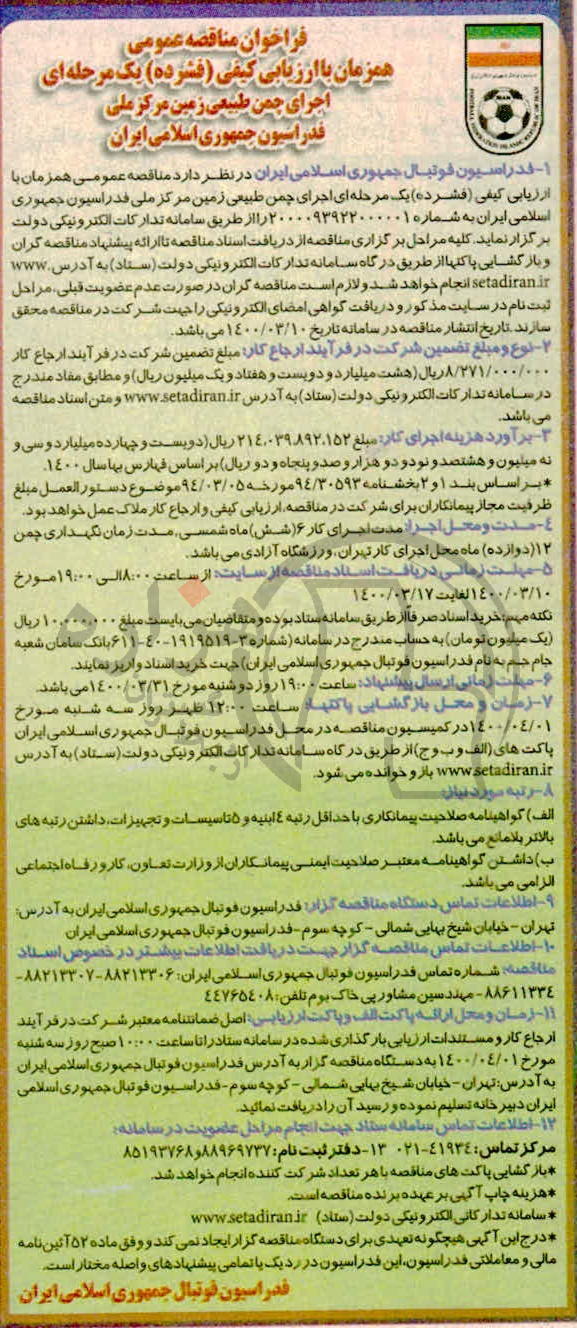 فراخوان مناقصه عمومی
همزمان با ارزیابی کیفی (فشرده) یک مرحله ای
اجرای چمن طبیعی زمین مرکز ملی
فدراسیون جمهوری اسلامی ایران
۱-فدراسیون فوتبال جمهوری اسلامی ایران در نظر دارد مناقصه عمومی همزمان با
ارزیابی کیفی (فشرده) یک مرحله ای اجرای چمن طبیعی زمین مرکز ملی فدراسیون جمهوری
اسلامی ایران به شماره ۲۰۰۰۰۹۳۹۲۲۰۰۰۰۰۱ را از طریق سامانه تدارکات الکترونیکی دولت
برگزار نماید. کلیه مراحل برگزاری مناقصه از دریافت اسناد مناقصه تا ارائه پیشنهاد مناقصه گران
و بازگشایی پاکتها از طریق درگاه سامانه تدارکات الکترونیکی دولت (ستاد) به آدرس www.
setadiran.ir انجام خواهد شد و لازم است مناقصه گران در صورت عدم عضویت قبلی، مراحل
ثبت نام در سایت مذکور و دریافت گواهی امضای الکترونیکی را جهت شرکت در مناقصه محقق
سازند. تاریخ انتشار مناقصه در سامانه تاریخ ۱۴۰۰/۰۳/۱۰ می باشد.
۲-نوع و مبلغ تضمین شرکت در فرآیند ارجاع کار: مبلغ تضمین شرکت در فرآیند ارجاع کار
۸/۲۷۱/۰۰۰/۰۰۰ ریال (هشت میلیارد و دویست و هفتاد و یک میلیون ریال) و مطابق مفاد مندرج
در سامانه تدارکات الکترونیکی دولت (ستاد) به آدرس www.setadiran.ir و متن اسناد مناقصه
می باشد.
۳-برآورد هزینه اجرای کار: مبلغ ۲۱۴،۰۳۹،۸۹۲،۱۵۲ ریال (دویست و چهارده میلیارد و سی و
نه میلیون و هشتصد و نود و دو هزار و صد و پنجاه و دو ریال) بر اساس فهارس بها سال ۱۴۰۰.
*بر اساس بند ۱ و ۲ بخشنامه ۹۴/۳۰۵۹۳ مورخه ۹۴/۰۳/۰۵ موضوع دستورالعمل مبلغ
ظرفیت مجاز پیمانکاران برای شرکت در مناقصه، ارزیابی کیفی و ارجاع کار ملاک عمل خواهد بود.
۴-مدت و محل اجرا: مدت اجرای کار ۶ (شش) ماه شمسی، مدت زمان نگهداری چمن
۱۲ (دوازده) ماه محل اجرای کار تهران، ورزشگاه آزادی می باشد.
۵-مهلت زمانی دریافت اسناد مناقصه از سایت: از ساعت ۸:۰۰ الی ۱۹:۰۰ مورخ
۱۴۰۰/۰۳/۱۰ لغایت ۱۴۰۰/۰۳/۱۷
نکته مهم: خرید اسناد صرفاً از طریق سامانه ستاد بوده و متقاضیان می بایست مبلغ ۱۰،۰۰۰،۰۰۰ ریال
(یک میلیون تومان) به حساب مندرج در سامانه (شماره ۳-۱۹۱۹۵۱۹-۴۰-۶۱۱ بانک سامان شعبه
جام جم به نام فدراسیون فوتبال جمهوری اسلامی ایران) جهت خرید اسناد واریز نمایند.
۶-مهلت زمانی ارسال پیشنهاد: ساعت ۱۹:۰۰ روز دوشنبه مورخ ۱۴۰۰/۰۳/۳۱ می باشد.
۷-زمان و محل بازگشایی پاکتها: ساعت ۱۲:۰۰ ظهر روز سه شنبه مورخ
۱۴۰۰/۰۴/۰۱ در کمیسیون مناقصه در محل فدراسیون فوتبال جمهوری اسلامی ایران
پاکت های (الف و ب و ج) از طریق درگاه سامانه تدارکات الکترونیکی دولت (ستاد) به آدرس
www.setadiran.ir باز و خوانده می شود.
۸-رتبه مورد نیاز:
الف) گواهینامه صلاحیت پیمانکاری با حداقل رتبه ۴ ابنیه و ۵ تاسیسات و تجهیزات، داشتن رتبه های
بالاتر بلامانع می باشد.
ب) داشتن گواهینامه معتبر صلاحیت ایمنی پیمانکاران از وزارت تعاون، کار و رفاه اجتماعی
الزامی می باشد.
۹-اطلاعات تماس دستگاه مناقصه گزار: فدراسیون فوتبال جمهوری اسلامی ایران به آدرس:
تهران - خیابان شیخ بهایی شمالی - کوچه سوم - فدراسیون فوتبال جمهوری اسلامی ایران
۱۰-اطلاعات تماس مناقصه گزار جهت دریافت اطلاعات بیشتر در خصوص اسناد
مناقصه: شماره تماس فدراسیون فوتبال جمهوری اسلامی ایران: ۸۸۲۱۳۳۰۶-۸۸۲۱۳۳۰۷-
۸۸۶۱۱۳۳۴ - مهندسین مشاور پی خاک بوم تلفن: ۴۴۷۶۵۴۰۸
۱۱-زمان و محل ارائه پاکت الف و پاکت ارزیابی: اصل ضمانتنامه معتبر شرکت در فرآیند
ارجاع کار و مستندات ارزیابی بارگذاری شده در سامانه ستاد را تا ساعت ۱۰:۰۰ صبح روز سه شنبه
مورخ ۱۴۰۰/۰۴/۰۱ به دستگاه مناقصه گزار به آدرس فدراسیون فوتبال جمهوری اسلامی ایران
به آدرس: تهران - خیابان شیخ بهایی شمالی - کوچه سوم - فدراسیون فوتبال جمهوری اسلامی
ایران دبیرخانه تسلیم نموده و رسید آن را دریافت نمائید.
۱۲-اطلاعات تماس سامانه ستاد جهت انجام مراحل عضویت در سامانه:
مرکز تماس: ۴۱۹۳۴-۰۲۱ ۱۳-دفتر ثبت نام: ۸۸۹۶۹۷۳۷ و ۸۵۱۹۳۷۶۸
*بازگشایی پاکت های مناقصه با هر تعداد شرکت کننده انجام خواهد شد.
*هزینه چاپ آگهی بر عهده برنده مناقصه است.
*سامانه تدارکاتی الکترونیکی دولت (ستاد) www.setadiran.ir
*درج این آگهی هیچگونه تعهدی برای دستگاه مناقصه گزار ایجاد نمی کند و وفق ماده ۵۲ آئین نامه
مالی و معاملاتی فدراسیون، این فدراسیون در رد یک یا تمامی پیشنهادهای واصله مختار است.
فدراسیون فوتبال جمهوری اسلامی ایران